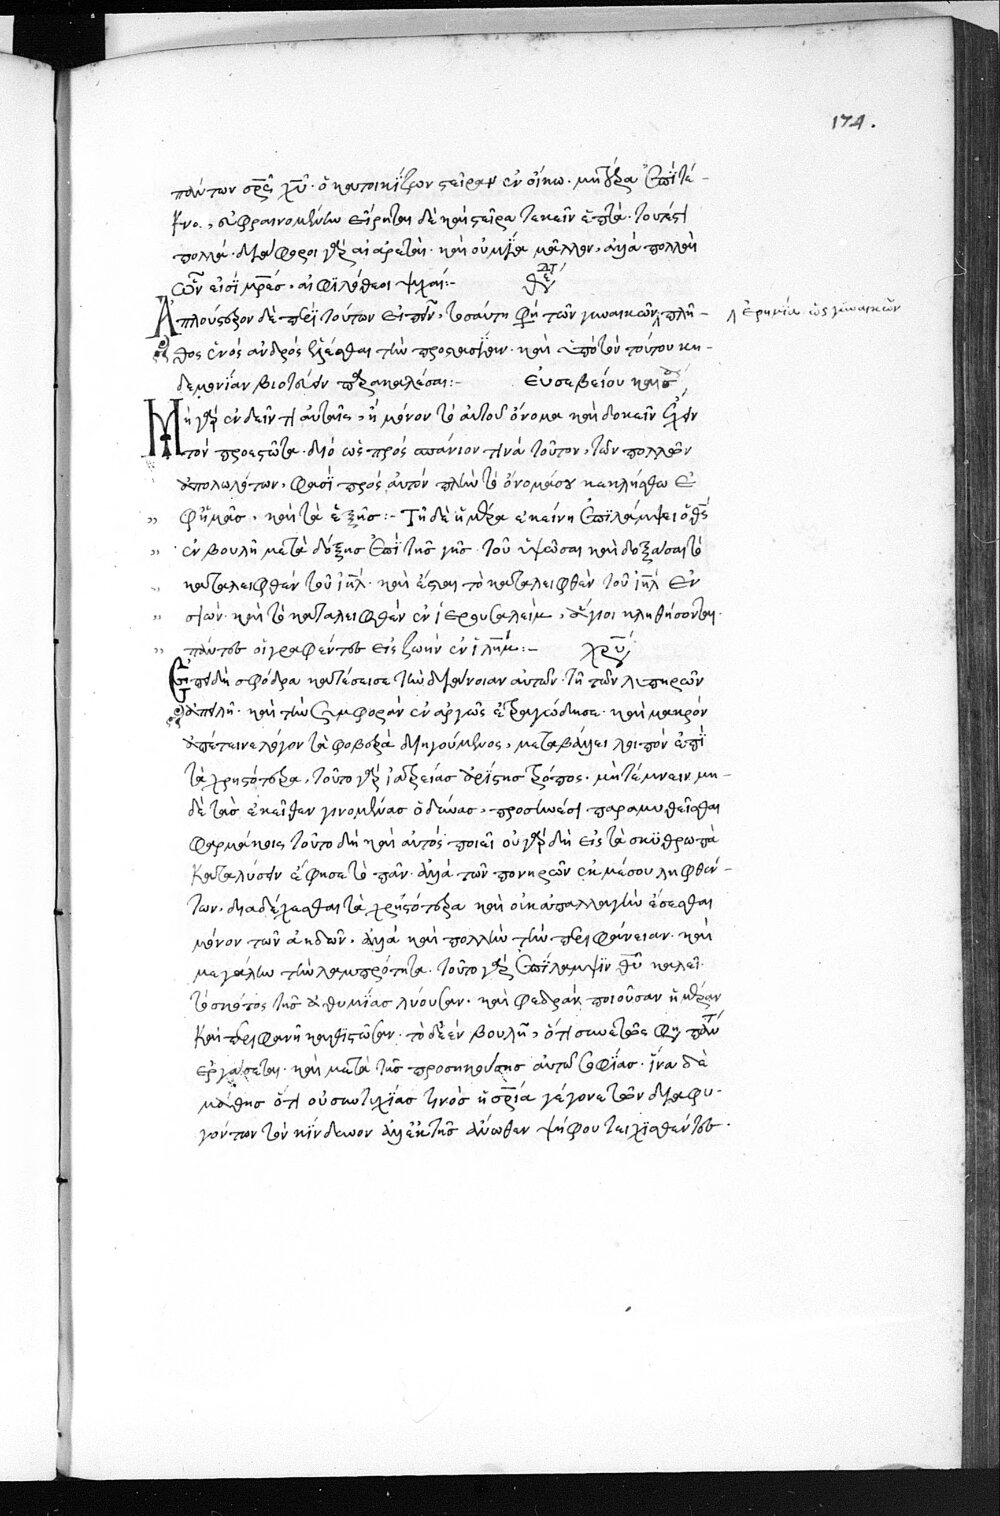 174.
πάντων σρ̅ς χυ̅. ὁ κατοικίζων στεῖραν ἐν οἴκω. μητέρα ἐπὶ τέ-
κνο., εὐφραινομένην εἴρηται δὲ καὶ στεῖρα τεκεῖν ἑπτά. τουτέστι
πολλά. διάφοροι γὰρ αἱ ἀρεταί. καὶ οὐ μία μᾶλλον, ἀλλὰ πολλαὶ
εἰσὶ μρ̅ες, αἱ φιλόθεοι ψυχαί:-
Ἁπλούστερον δὲ περὶ τούτων εἰπεῖν, τοσαύτη φη τῶν γυναικῶν πλη-
ἐρημία ὡς γυναικῶν
θος ἑνός ἀνδρός ἔχεσθαι τὴν προστασίαν. καὶ ὑπὸ τὴν τούτου κη-
δεμονίαν βιοτεύειν παρακαλέσαι:- Εὐσεβείου
Μὴ γὰρ ἐνδεῖν τι αὐταῖς, ἢ μόνον τὸ αὐτοῦ ὄνομα καὶ δοκεῖν ἔχειν
τὸν προεστῶτα. διό ὡς πρός σπάνιον τινά τοῦτον, τῶν πολλῶν
ἀπολωλότων, φασὶ πρός αὐτόν πλὴν τὸ ὄνομά σου κεκλήσθω ἐ
φ' ἡμᾶς, καὶ τὰ ἑξῆς:- Τῆ δὲ ἡμέρα ἐκείνη ἐπιλάμψει ὁ θς̅
ἐν βουλῆ μετὰ δόξης ἐπὶ τῆς γῆς. τοῦ ὑψῶσαι καὶ δοξάσαι τὸ
καταλειφθὲν τοῦ ιηλ̅. καὶ ἔσται τὸ καταλειφθὲν τοῦ ιηλ̅ ἐν
σιών. καὶ τὸ καταλειφθὲν ἐν ἱερουσαλείμ, ἅγιοι κληθήσονται.
πάντες οἱ γραφέντες εἰς ζωὴν ἐν ιλημ̅:-
Ἐπειδὴ σφόδρα κατέσεισε τὴν διάνοιαν αὐτῶν. τῆ τῶν λυπηρῶν
ἀπειλῆ. καὶ τὴν συμφορὰν ἐναργῶς ἐξετραγώδησε. καὶ μακρόν
ἀπέτεινε λόγον τὰ φοβερὰ διηγούμενος, μεταβάλλει λοιπὸν ἐπὶ
τὰ χρηστότερα, τοῦτο γὰρ ἰατρείας ἀρίστης τρόπος. μὴ τέμνειν μη-
δὲ τὰς ἐκεῖθεν γινομένας ὀδύνας, προσηνέσι παραμυθεῖσθαι
φαρμάκοις τοῦτο δὴ καὶ αὐτὸς ποιεῖ οὐ γὰρ δὴ εἰς τὰ σκυθρωπὰ
καταλύσειν ἔφησε τὸ πᾶν. ἀλλὰ τῶν πονηρῶν ἐκ μέσου ληφθέν-
των, διαδέχεσθαι τὰ χρηστότερα καὶ οὐκ ἀπαλλαγὴν ἔσεσθαι
μόνον τῶν ἀηδῶν, ἀλλὰ καὶ πολλὴν τὴν περιφάνειαν. καὶ
μεγάλην τὴν λαμπρότητα. τοῦτο γὰρ ἐπίλαμψιν θυ̅ καλεῖ.
τὸ σκότος τῆς ἀθυμίας λύουσαν. καὶ φεδρὰν ποιοῦσαν ἡμέραν
καὶ περιφανῆ καθιστῶσαν. τὸ δὲ ἐν βουλῆ, ὅτι συνετῶς φη πάντα
ἐργάσεται. καὶ μετὰ τῆς προσηκούσης αὐτῶ σοφίας. ἵνα δὲ
μάθης ὅτι οὐ συντυχίας τινὸς ἡ σρ̅ία γέγονε τῶν διαφυ-
γόντων τὸν κίνδυνον ἀλλ' ἐκ τῆς ἄνωθεν ψήφου τειχισθέντες.